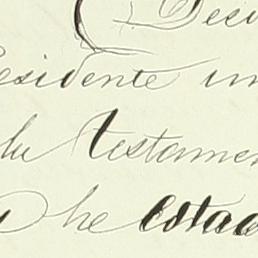 Deci
esidente in
lu testamen
he estad